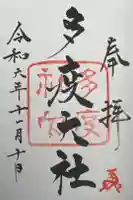 奉拝
多度大社
多度大社
令和六年十一月十日